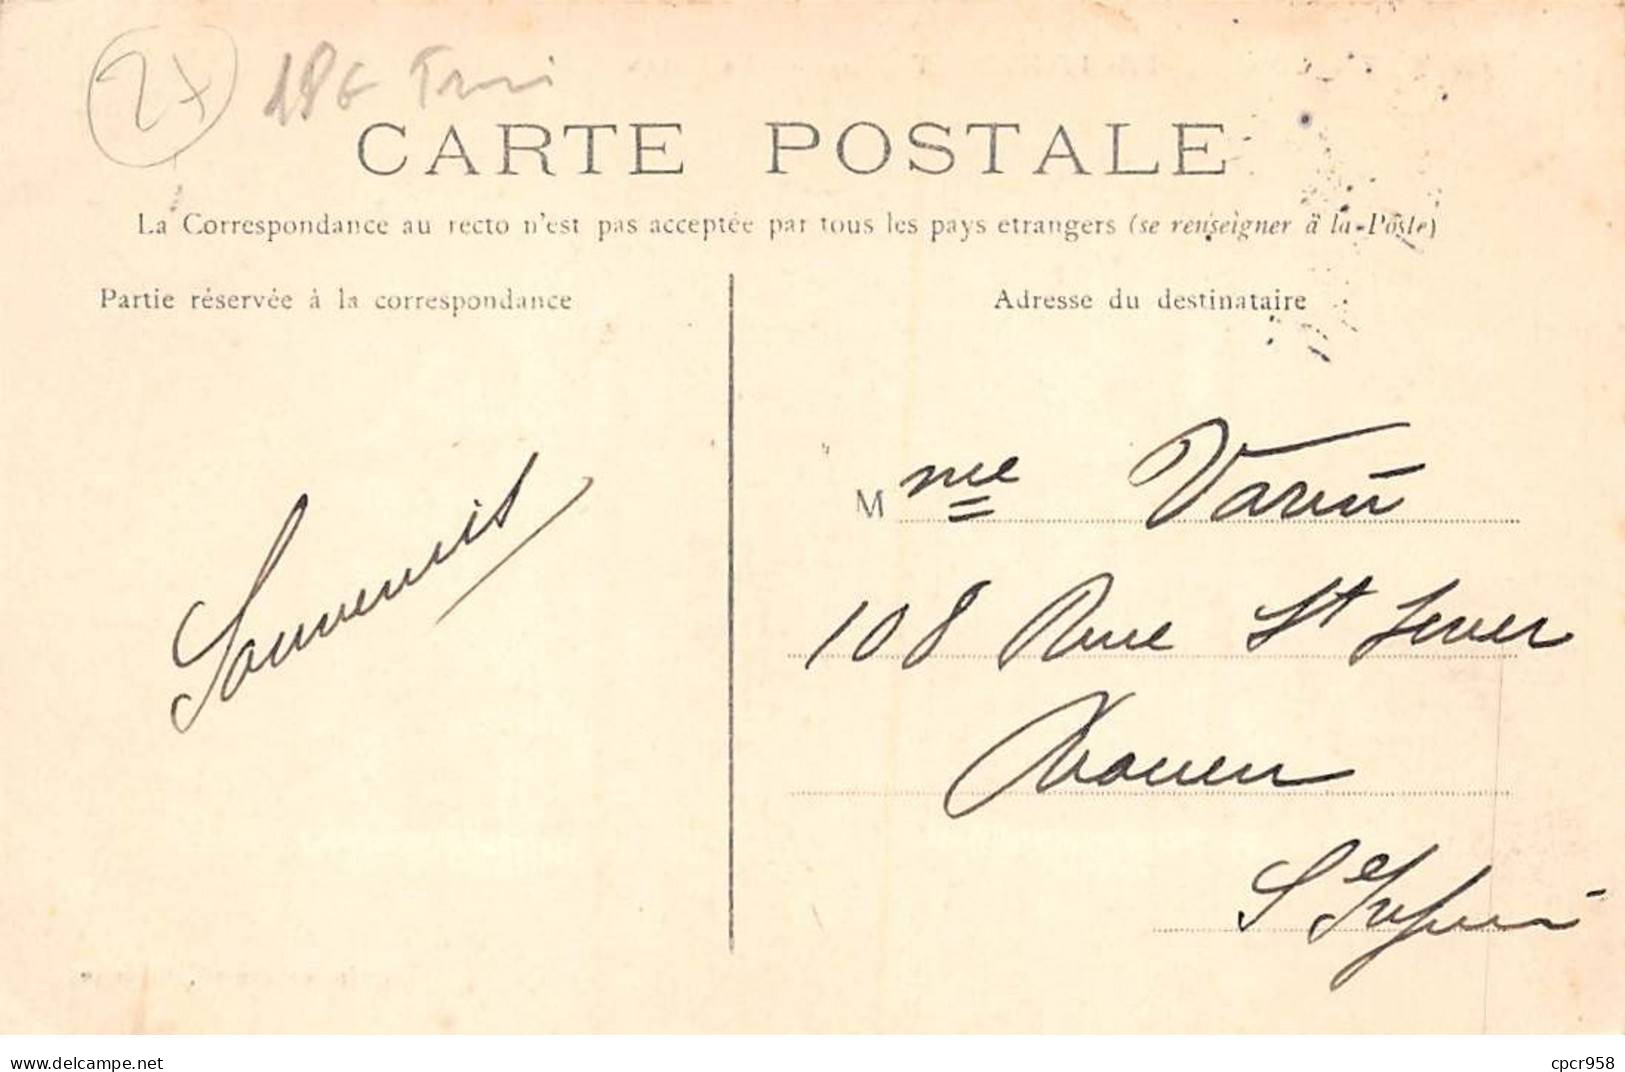 27
CARTE POSTALE
La Correspondance au recto n'est pas acceptée par tous les pays etrangers (se renseigner à la Poste)
Partie réservée à la correspondance
Adresse du destinataire
Souvenirs
M me Varin
108 Rue St Sever
Rouen
S Infre
delcampe.net
cpcr958